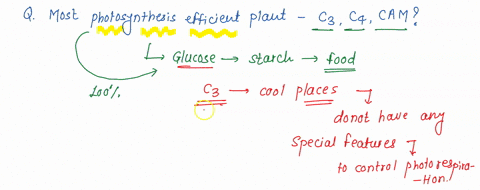 Q. Most photosynthesis efficient plant - C3, C4, CAM?
Glucose → starch → food
100%
C3 → cool places
donot have any
special features
to control photorespira-
-tion.